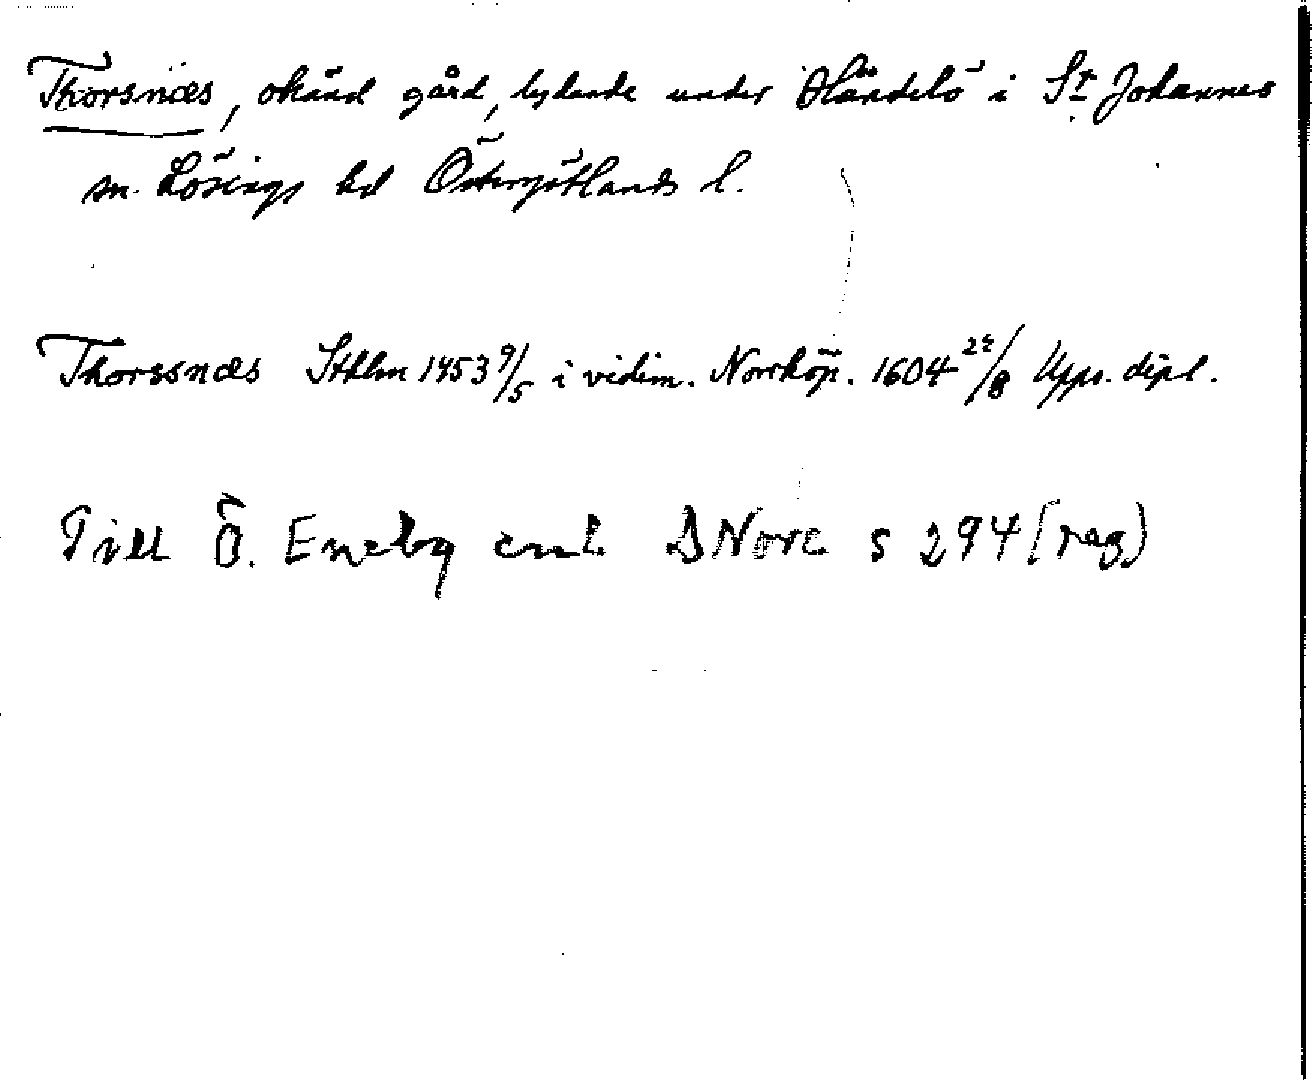 Thorsnæs, okänd gård, lydande under Händelö i St Johannes
sn. Lösings hd Östergötlands l.
Thorssnæs Sthlm 1453 9/5 i vidim. Norrköp. 1604 22/8 Upps. dipl.
Till Ö. Eneby enl. DNorr s 294 (reg)